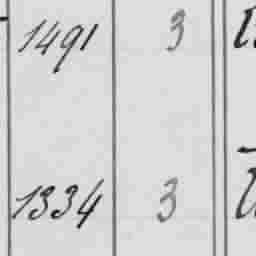 1491 3
1334 3